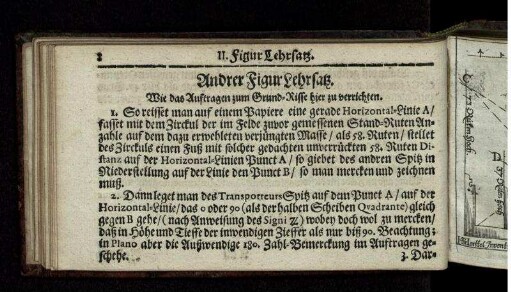 2 II. Figur Lehrsatz.
Andrer Figur Lehrsatz.
Wie das Auftragen zum Grund-Risse hier zu verrichten.
1. So reisset man auf einem Papiere eine gerade Horizontal-Linie A/
fasset mit dem Zirckul der im Felde zuvor gemessenen Stand-Ruten An-
zahle auf dem dazu erwehleten verjüngten Masse/ als 58. Ruten/ stellet
des Zirckuls einen Fuß mit solcher gedachten unverrückten 58. Ruten Di-
stanz auf der Horizontal-Linien Punct A/ so giebet des andren Spitz in
Niederstellung auf der Linie den Punct B/ so man mercken und zeichnen
muß.
2. Dann leget man des Transporteurs Spitz auf dem Punct A/ auf der
Horizontal-Linie/ das 0 oder 90 (als der halben Scheiben Quadrante) gleich
gegen B gehe/ (nach Anweisung des Signi Z/) wobey doch wol zu mercken/
daß in Höhe und Tieffe der inwendigen Zieffer als nur biß 90. Beachtung;
in Plano aber die Außwendige 180. Zahl-Bemerckung im Auftragen ge-
schehe.
3. Dar-